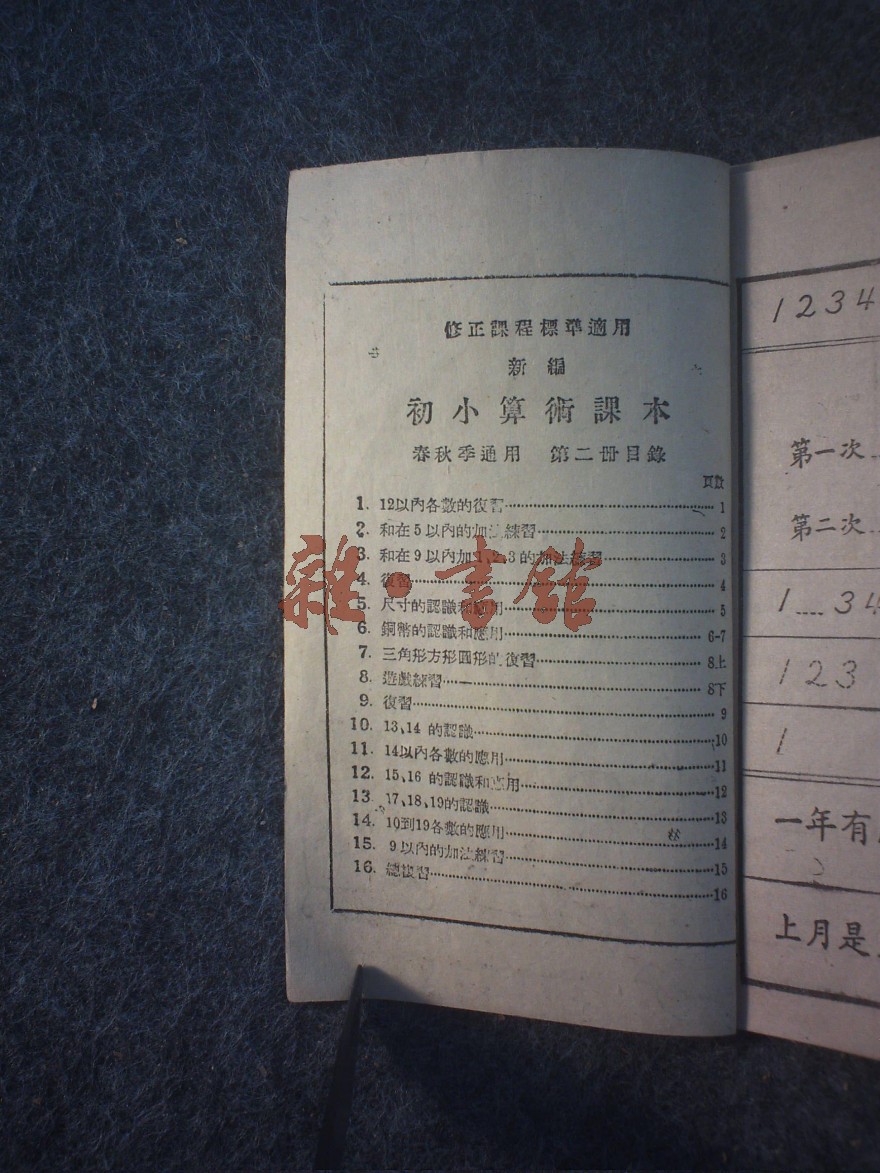 修正課程標準適用
新編
初小算術課本
春秋季通用 第二冊目錄
頁數
1. 12以內各數的復習 1
2. 和在5以內的加法練習 2
3. 和在9以內加1、2、3的加法練習 3
4. 復習 4
5. 尺寸的認識和應用 5
6. 銅幣的認識和應用 6-7
7. 三角形方形圓形的復習 8上
8. 遊戲練習 8下
9. 復習 9
10. 13、14 的認識 10
11. 14以內各數的應用 11
12. 15、16 的認識和應用 12
13. 17、18、19的認識 13
14. 10到19各數的應用 14
15. 9以內的加法練習 15
16. 總復習 16
雜·書館
1234
第一次
第二次
1....34
123
1
一年有
上月是